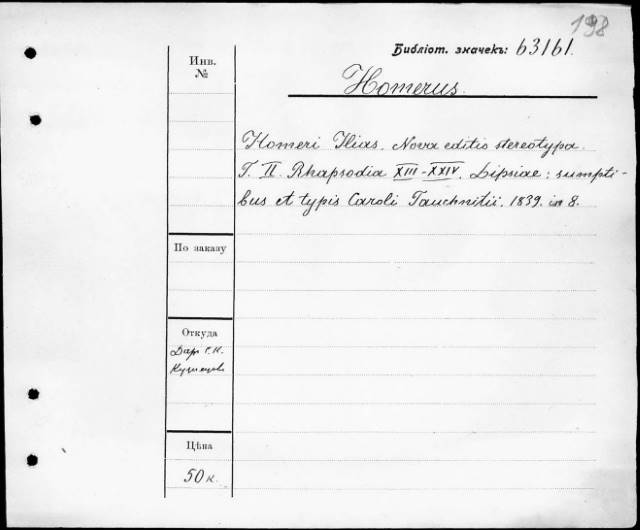 198
Библіот. значекъ: 63161.
Инв.
№
Homerus.
Homeri Ilias. Nova editio stereotypa.
T. II. Rhapsodia XIII-XXIV. Lipsiae: sumpti-
bus et typis Caroli Tauchnitii. 1839. in 8.
По заказу
Откуда
Дар Г. Н.
Кузнецова
Цѣна
50 к.